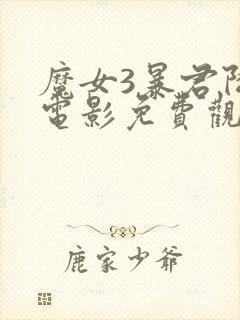 魔女3暴君降
電影免費觀
鹿家少爺